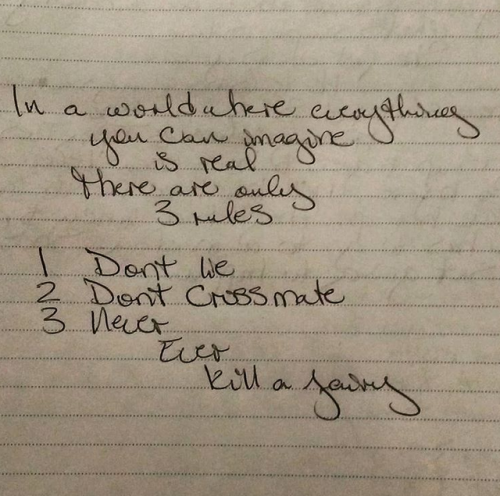 In a world where everything
you can imagine
is real
there are only
3 rules
1 Dont lie
2 Dont Crossmate
3 Never
Ever
Kill a fairy